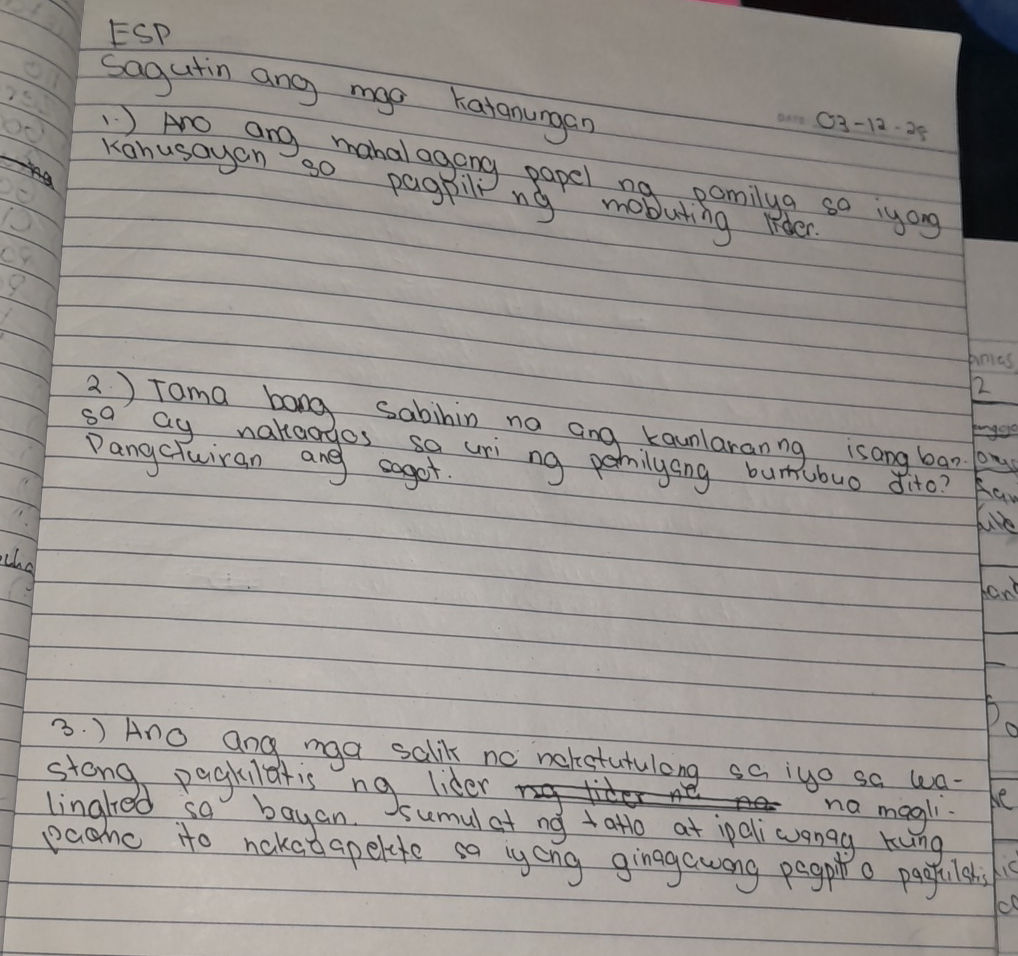 ESP
Sagutin ang mga katanungan
03-12-25
1.) Ano ang mahalagang papel ng pamilya sa iyong
kahusayan sa pagpili ng mabuting lider.
2.) Tama bang sabihin na ang kaunlaran ng isang ban-
sa ay nakaayos sa uri ng pamilyang bumubuo dito?
Pangatwiran ang sagot.
3.) Ano ang mga salik na nakatutulong sa iyo sa wa-
stong pagkilatis ng lider na magli-
lingkod sa bayan. Sumulat ng tatlo at ipaliwanag kung
paano ito nakadapekto sa iyong ginagawang pagpili o pagkilatis